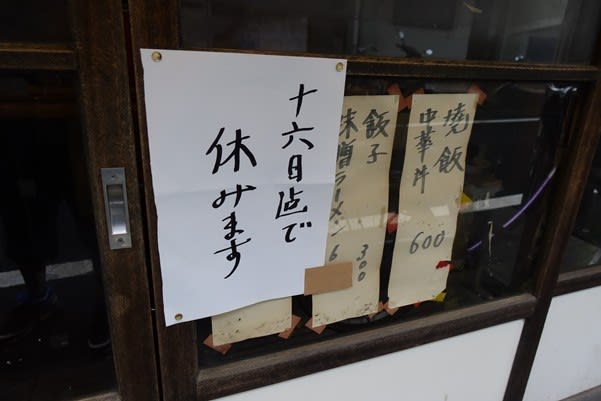 焼飯
中華丼
600
餃子
300
味噌ラーメン
6
十六日迠で
休みます